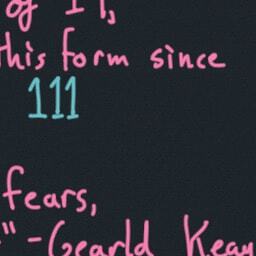 of IT,
this form since
111
fears,
" - Gearld Keay